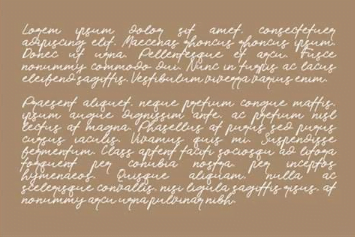 Lorem ipsum dolor sit amet, consectetuer
adipiscing elit. Maecenas rhoncus rhoncus ipsum.
Donec ut urna. Pellentesque et arcu. Fusce
nonummy commodo dui. Nunc in turpis ac lacus
eleifend sagittis. Vestibulum viverra varius enim.
Praesent aliquet, neque pretium congue mattis,
ipsum augue dignissim ante, ac pretium nisl
lectus at magna. Phasellus at purus sed purus
cursus iaculis. Vivamus quis mi. Suspendisse
fermentum. Class aptent taciti sociosqu ad litora
torquent per conubia nostra, per inceptos
hymenaeos. Quisque aliquam, nulla ac
scelerisque convallis, nisi ligula sagittis risus, at
nonummy arcu urna pulvinar nibh.